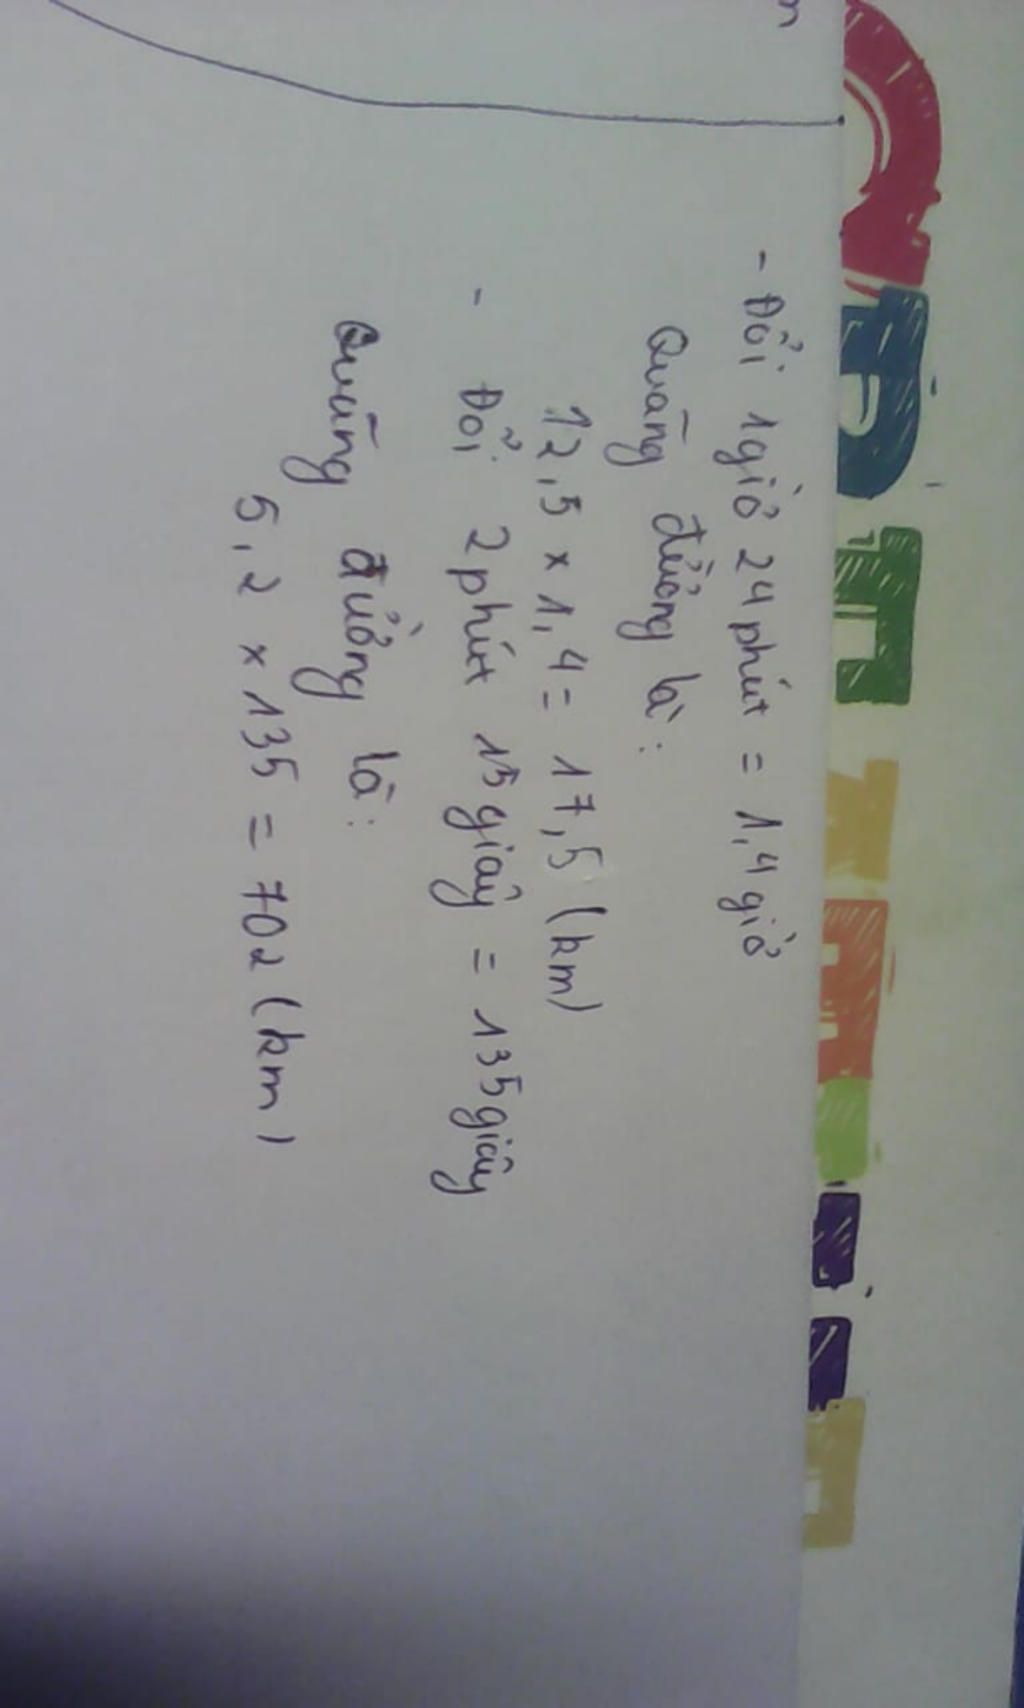 - Đổi 1giờ 24 phút = 1,4 giờ
Quãng đường là:
12,5 x 1,4 = 17,5 (km)
- Đổi 2 phút 15 giây = 135 giây
Quãng đường là:
5,2 x 135 = 702 (km)